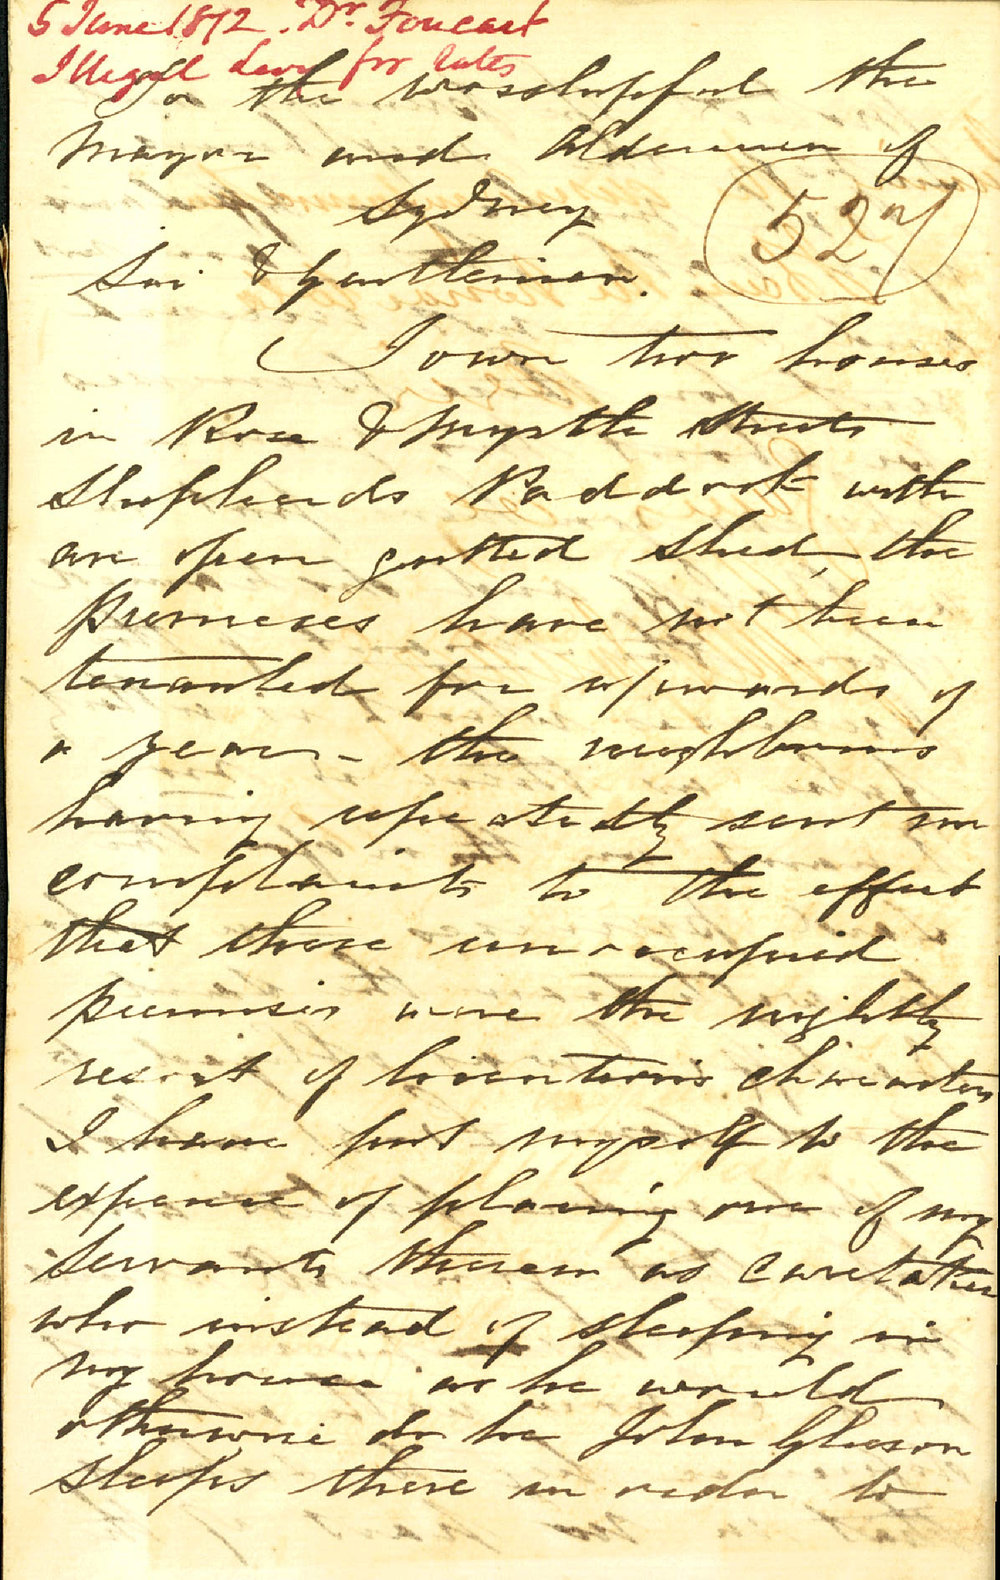 5 June 1872. Dr. Foucart
Illegal Levy for rates
To the worshipful the
Mayor and Aldermen of
Sydney
527
Sir & Gentlemen.
I own two houses
in Rose & Myrtle Streets
Shepherds Paddock with
an open gutted shed, the
premeses have not been
tenanted for upwards of
a year - the neighbours
having repeatedly sent me
complaints to the effect
that those un-occupied
premises were the nightly
resort of licentious characters
I have put myself to the
expense of placing one of my
servants therein as caretaker
who instead of sleeping in
my house as he would
otherwise do he John Gleeson
sleeps there in order to